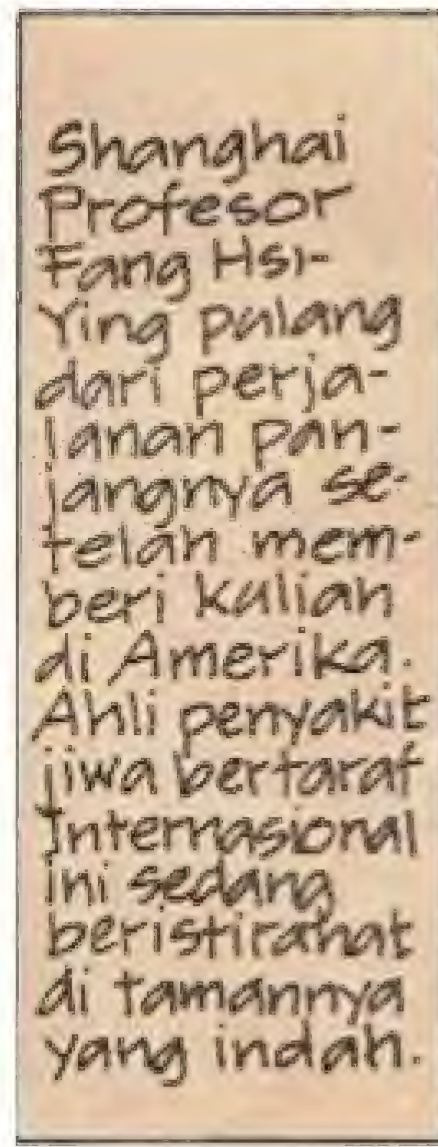 Shanghai
Profesor
Fang Hsi-
Ying pulang
dari perja-
lanan pan-
jangnya se-
telah mem-
beri kuliah
di Amerika.
Ahli penyakit
jiwa bertaraf
Internasional
ini sedang
beristirahat
di tamannya
yang indah.